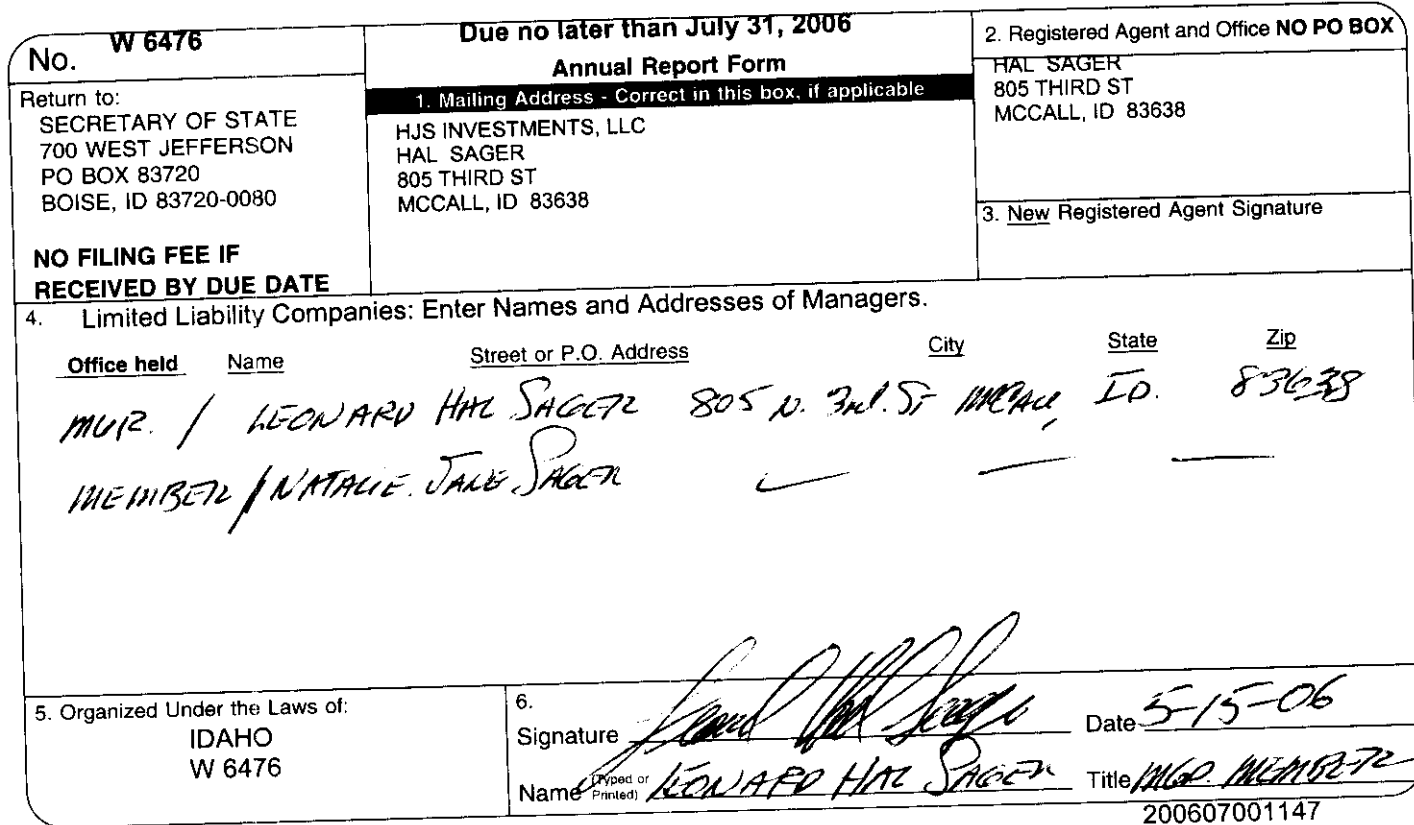 No. W 6476
Return to:
SECRETARY OF STATE
700 WEST JEFFERSON
PO BOX 83720
BOISE, ID 83720-0080
NO FILING FEE IF
RECEIVED BY DUE DATE
Due no later than July 31, 2006
Annual Report Form
1. Mailing Address - Correct in this box, if applicable
HJS INVESTMENTS, LLC
HAL SAGER
805 THIRD ST
MCCALL, ID 83638
2. Registered Agent and Office NO PO BOX
HAL SAGER
805 THIRD ST
MCCALL, ID 83638
3. New Registered Agent Signature
4. Limited Liability Companies: Enter Names and Addresses of Managers.
Office held Name Street or P.O. Address City State Zip
MGR. / LEONARD HAL SAGER 805 N. 3rd. ST MCCALL, ID. 83638
MEMBER / NATALIE. JANE SAGER — — —
5. Organized Under the Laws of:
IDAHO
W 6476
6.
Signature Leonard Hal Sager Date 5-15-06
Name (Typed or Printed) LEONARD HAL SAGER Title MGD. MEMBER
200607001147